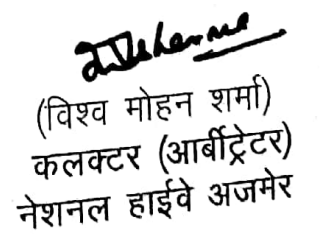 (विश्व मोहन शर्मा)
कलक्टर (आर्बीट्रेटर)
नेशनल हाईवे अजमेर